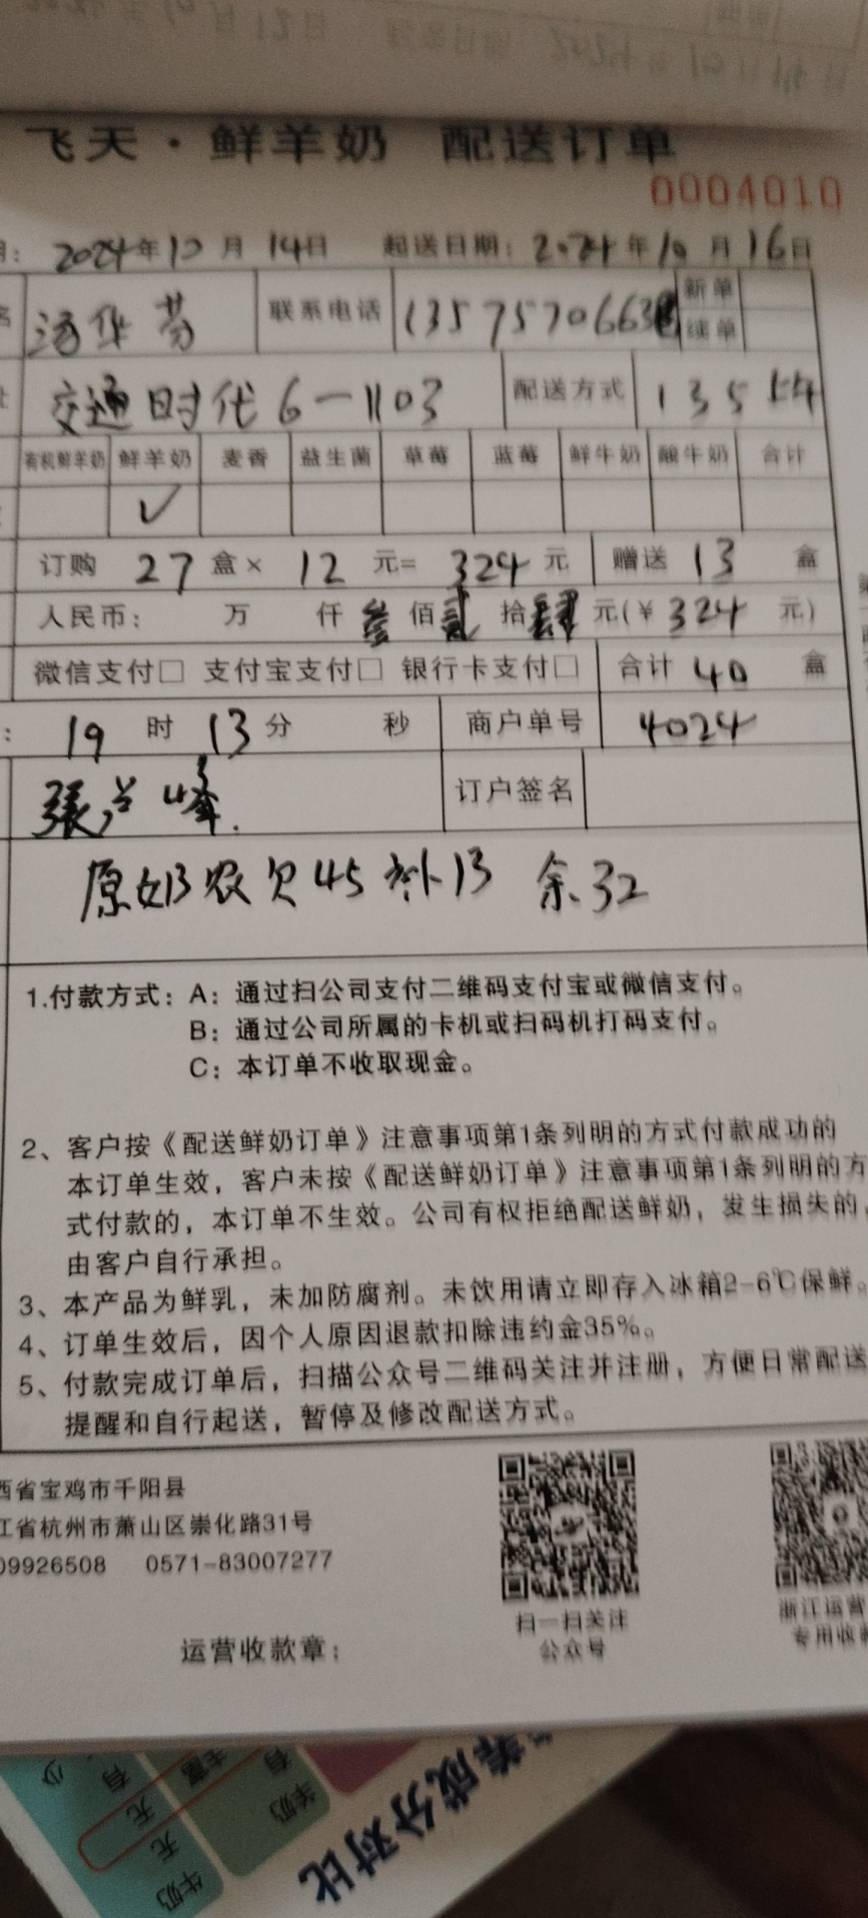 飞天·鲜羊奶 配送订单
0004010
2024年10月14日 起送日期：2024年10月16日
汤华芬 联系电话 1357570663 新单
续单
交通时代6-1103 配送方式 135
有机鲜羊奶 鲜羊奶 麦香 益生菌 草莓 蓝莓 鲜牛奶 酸牛奶 合计
✓
订购 27 盒× 12 元= 324 元 赠送 13 盒
人民币： 万 仟 叁 佰 贰 拾 肆 元(￥324 元)
微信支付□ 支付宝支付□ 银行卡支付□ 合计 40 盒
19 时 13 分 秒 商户单号 4024
張 峰 订户签名
原奶农欠45补13 余32
1.付款方式：A：通过扫公司支付二维码支付宝或微信支付。
B：通过公司所属的卡机或扫码机打码支付。
C：本订单不收取现金。
2、客户按《配送鲜奶订单》注意事项第1条列明的方式付款成功的
本订单生效，客户未按《配送鲜奶订单》注意事项第1条列明的方
式付款的，本订单不生效。公司有权拒绝配送鲜奶，发生损失的，
由客户自行承担。
3、本产品为鲜乳，未加防腐剂。未饮用请立即存入冰箱2-6℃保鲜。
4、订单生效后，因个人原因退款扣除违约金35%。
5、付款完成订单后，扫描公众号二维码关注并注册，方便日常配送
提醒和自行起送，暂停及修改配送方式。
西省宝鸡市千阳县
江省杭州市萧山区崇化路31号
09926508 0571-83007277
扫一扫关注
公众号
浙江运营
专用收款
运营收款章：
养成分对比
羊奶
牛奶